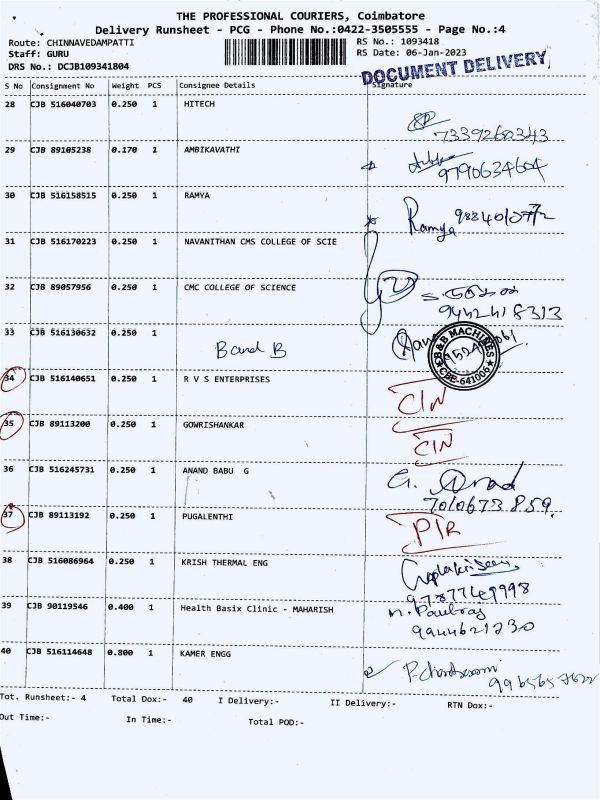 THE PROFESSIONAL COURIERS, Coimbatore
Delivery Runsheet - PCG - Phone No.:0422-3505555 - Page No.:4
Route: CHINNAVEDAMPATTI RS No.: 1093418
Staff: GURU RS Date: 06-Jan-2023
DRS No.: DCJB109341804
DOCUMENT DELIVERY
S No Consignment No Weight PCS Consignee Details Signature
28 CJB 516040703 0.250 1 HITECH
7339260343
29 CJB 89105238 0.170 1 AMBIKAVATHI
9790634604
30 CJB 516158515 0.250 1 RAMYA
Ramya
31 CJB 516170223 0.250 1 NAVANITHAN CMS COLLEGE OF SCIE
32 CJB 89057956 0.250 1 CMC COLLEGE OF SCIENCE
9442418313
33 CJB 516130632 0.250 1 B and B
B&B MACHINES
CBE-641006
34 CJB 516140651 0.250 1 R V S ENTERPRISES
CIN
35 CJB 89113200 0.250 1 GOWRISHANKAR
CIN
36 CJB 516245731 0.250 1 ANAND BABU G
G. Anad
7010673859
37 CJB 89113192 0.250 1 PUGALENTHI
PIR
38 CJB 516086964 0.250 1 KRISH THERMAL ENG
9787749998
39 CJB 90119546 0.400 1 Health Basix Clinic - MAHARISH
n. Paulraj
9944621230
40 CJB 516114648 0.800 1 KAMER ENGG
Tot. Runsheet:- 4 Total Dox:- 40 I Delivery:- II Delivery:- RTN Dox:-
Out Time:- In Time:- Total POD:-